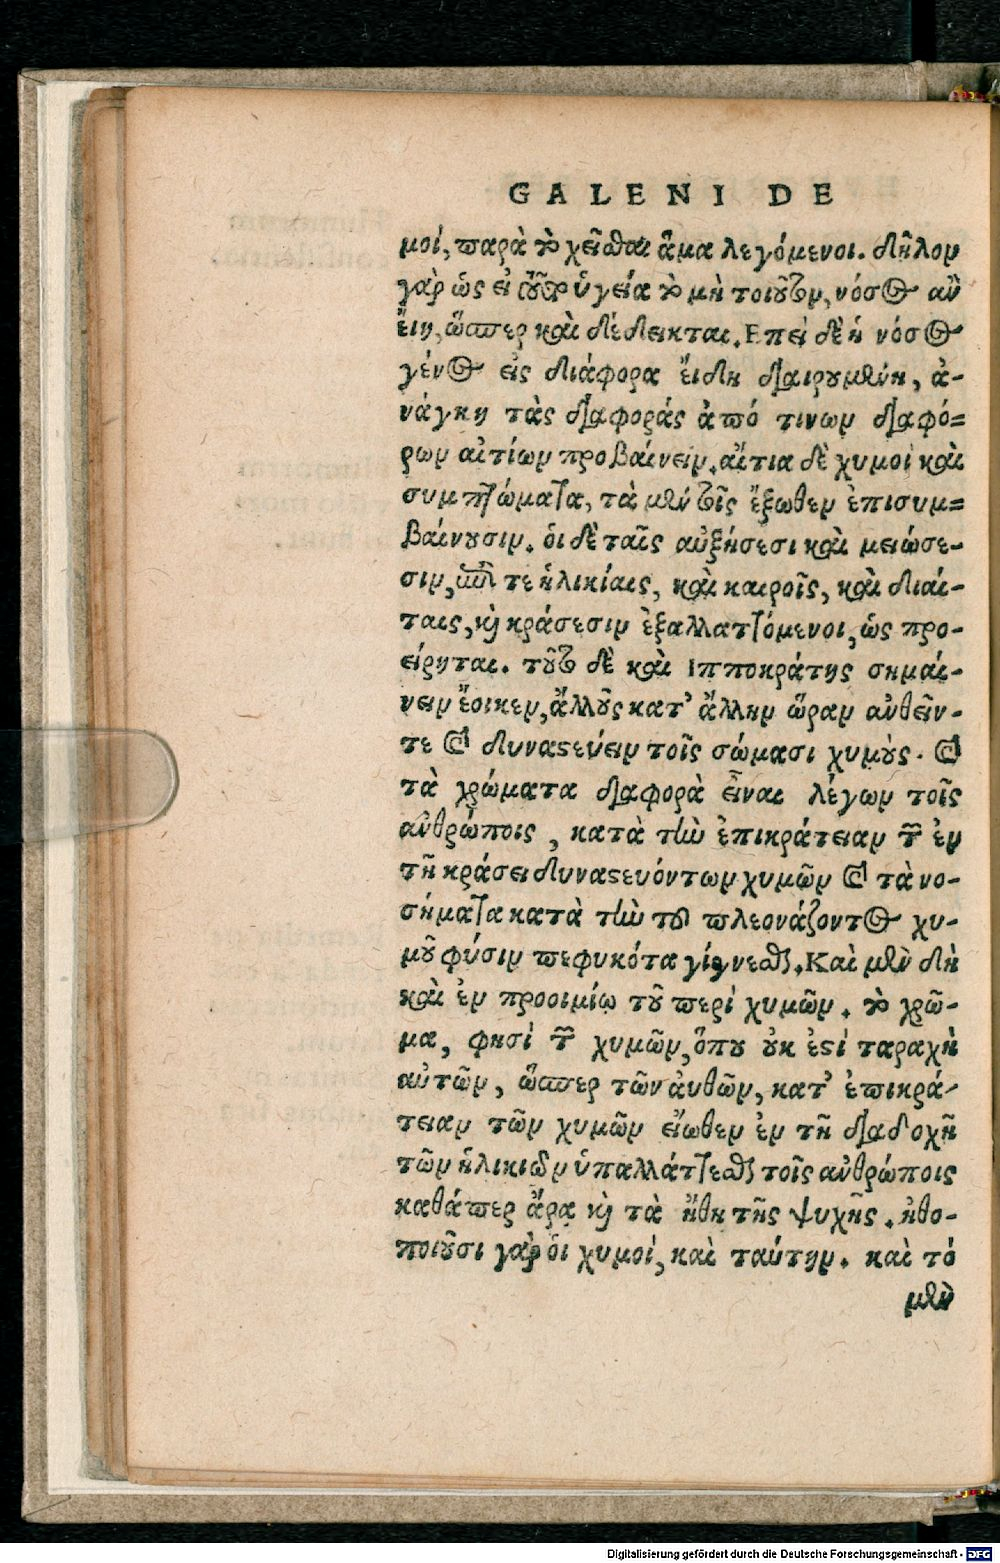 GALENI DE
μοί, παρὰ τὸ χεῖσθαι ἅμα λεγόμενοι. δῆλον
γὰρ ὡς εἰ τοῦτο ὑγεία τὸ μὴ τοιοῦτον, νόσος ἂν
εἴη, ὥσπερ καὶ δέδεικται. Επεὶ δὲ ἡ νόσος
γένος εἰς διάφορα εἴδη διαιρουμένη, ἀ-
νάγκη τὰς διαφοράς ἀπό τινων διαφό=
ρων αἰτίων προβαίνειν. αἴτια δὲ χυμοὶ καὶ
συμπτώματα, τὰ μὲν τοῖς ἔξωθεν ἐπισυμ=
βαίνουσιν. ὁι δὲ ταῖς αὐξήσεσι καὶ μειώσε-
σιν, ταῖς τε ἡλικίαις, καὶ καιροῖς, καὶ διαί-
ταις, καὶ κράσεσιν ἐξαλλαττόμενοι, ὡς προ-
είρηται. τοῦτο δὲ καὶ Ιπποκράτης σημαί-
νειν ἔοικεν, ἄλλους κατ' ἄλλην ὥραν ἀνθεῖν-
τε καὶ δυναστεύειν τοῖς σώμασι χυμοὺς. καὶ
τὰ χρώματα διαφορὰ εἶναι λέγων τοῖς
ἀνθρώποις, κατὰ τὴν ἐπικράτειαν τῶν ἐν
τῇ κράσει δυναστευόντων χυμῶν καὶ τὰ νο-
σήματα κατὰ τὴν τοῦ πλεονάζοντος χυ-
μοῦ φύσιν πεφυκότα γίγνεσθαι. Καὶ μὲν δὴ
καὶ ἐν προοιμίῳ τοῦ περί χυμῶν. τὸ χρῶ-
μα, φησί τῶν χυμῶν, ὅπου οὐκ ἐστί ταραχὴ
αὐτῶν, ὥσπερ τῶν ἀνθῶν, κατ' ἐπικρά-
τειαν τῶν χυμῶν εἴωθεν ἐν τῇ διαδοχῇ
τῶν ἡλικιῶν ὑπαλλάττεσθαι τοῖς ἀνθρώποις
καθάπερ ἄρα καὶ τὰ ἤθη τῆς ψυχῆς. ἠθο-
ποιοῦσι γὰρ ὁι χυμοί, καὶ ταύτην. καὶ τό
μὲν
Digitalisierung gefördert durch die Deutsche Forschungsgemeinschaft - DFG